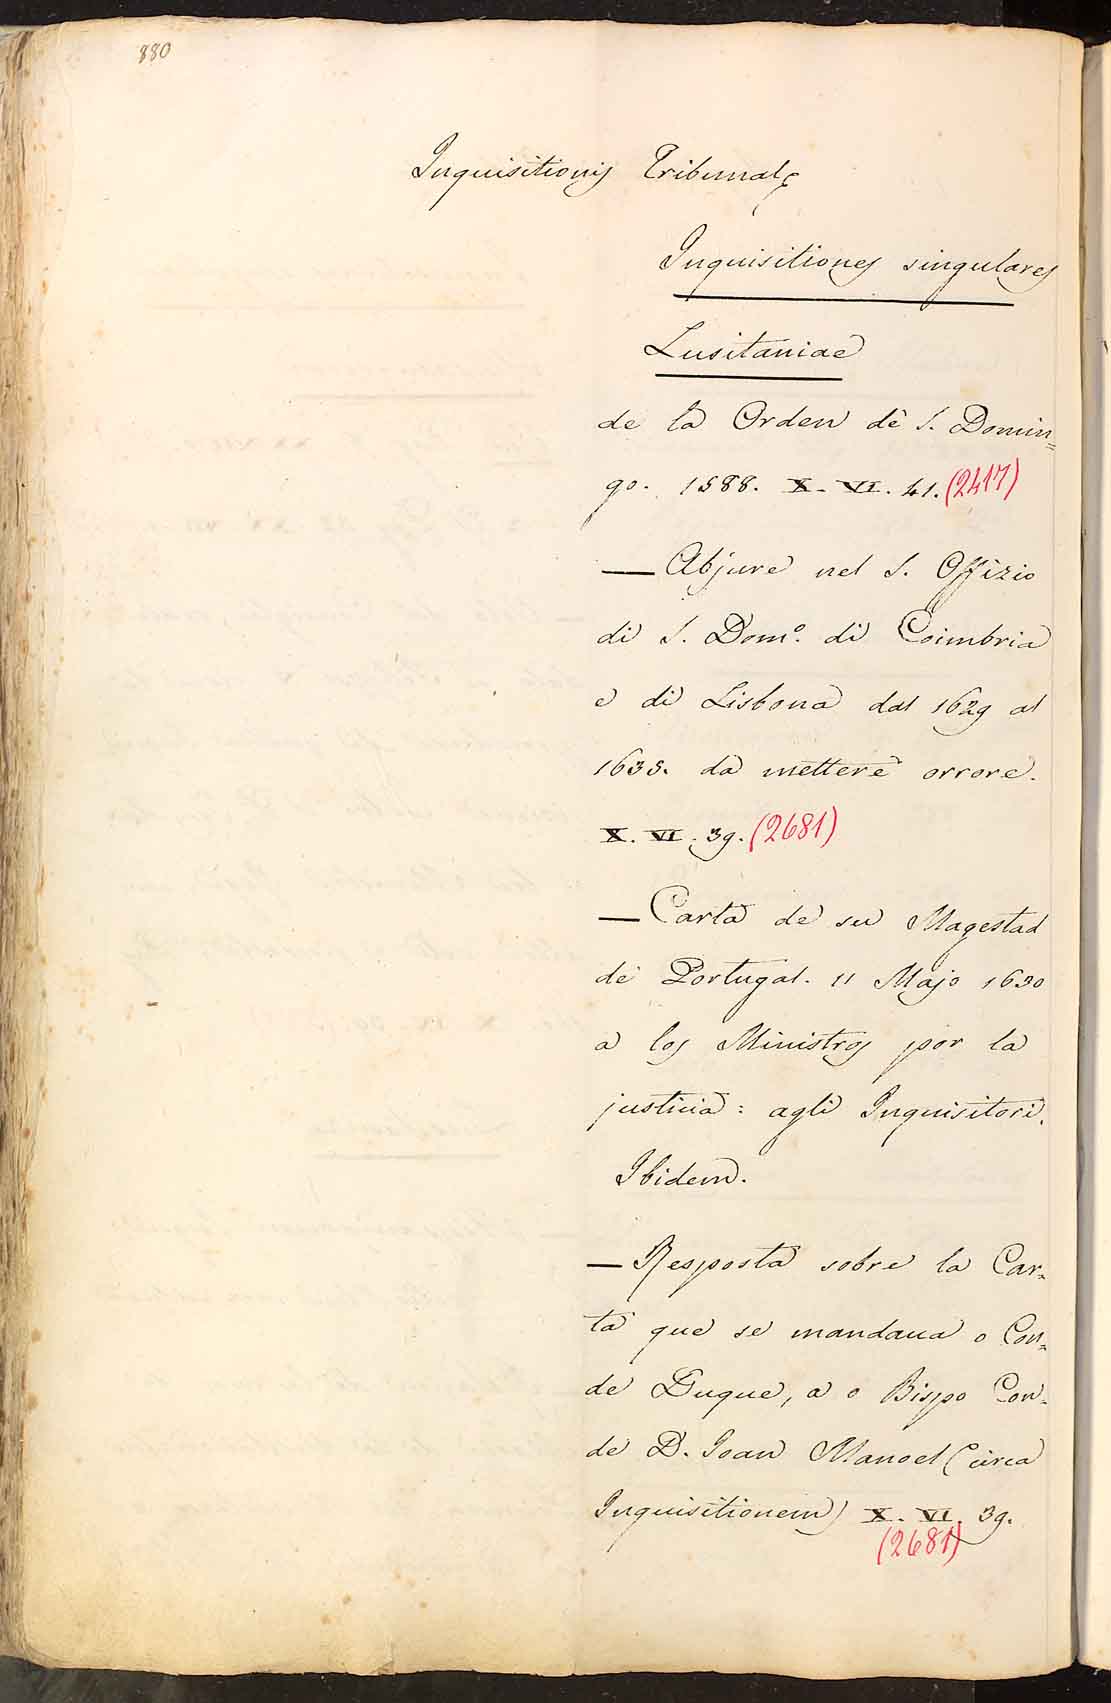 880
Inquisitionis Tribunale
Inquisitiones singulares
Lusitaniae
de la Orden de S. Domin=
go. 1588. X. VI. 41. (2417)
— Abjure nel S. Offizio
di S. Dom.º di Coimbria
e di Lisbona dal 1629 al
1635. da mettere orrore.
X. VI. 39. (2681)
— Carta de su Magestad
de Portugal. 11 Majo 1630
a los Ministros por la
justicia: agli Inquisitori.
Ibidem.
— Resposta sobre la Car=
ta que se mandaua o Con=
de Duque, a o Bispo Con=
de D. Joan Manoel (circa
Inquisitionem) X. VI. 39.
(2681)